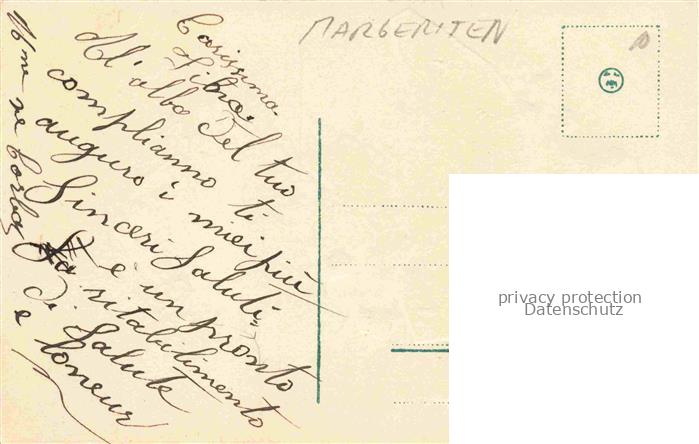 MARGERITEN
Carissima
Libra.
Al' alba Del tuo
complianno ti
auguro i miei più
Sinceri Saluti
e un pronto
ristabilimento
di Salute
e
privacy protection
Datenschutz